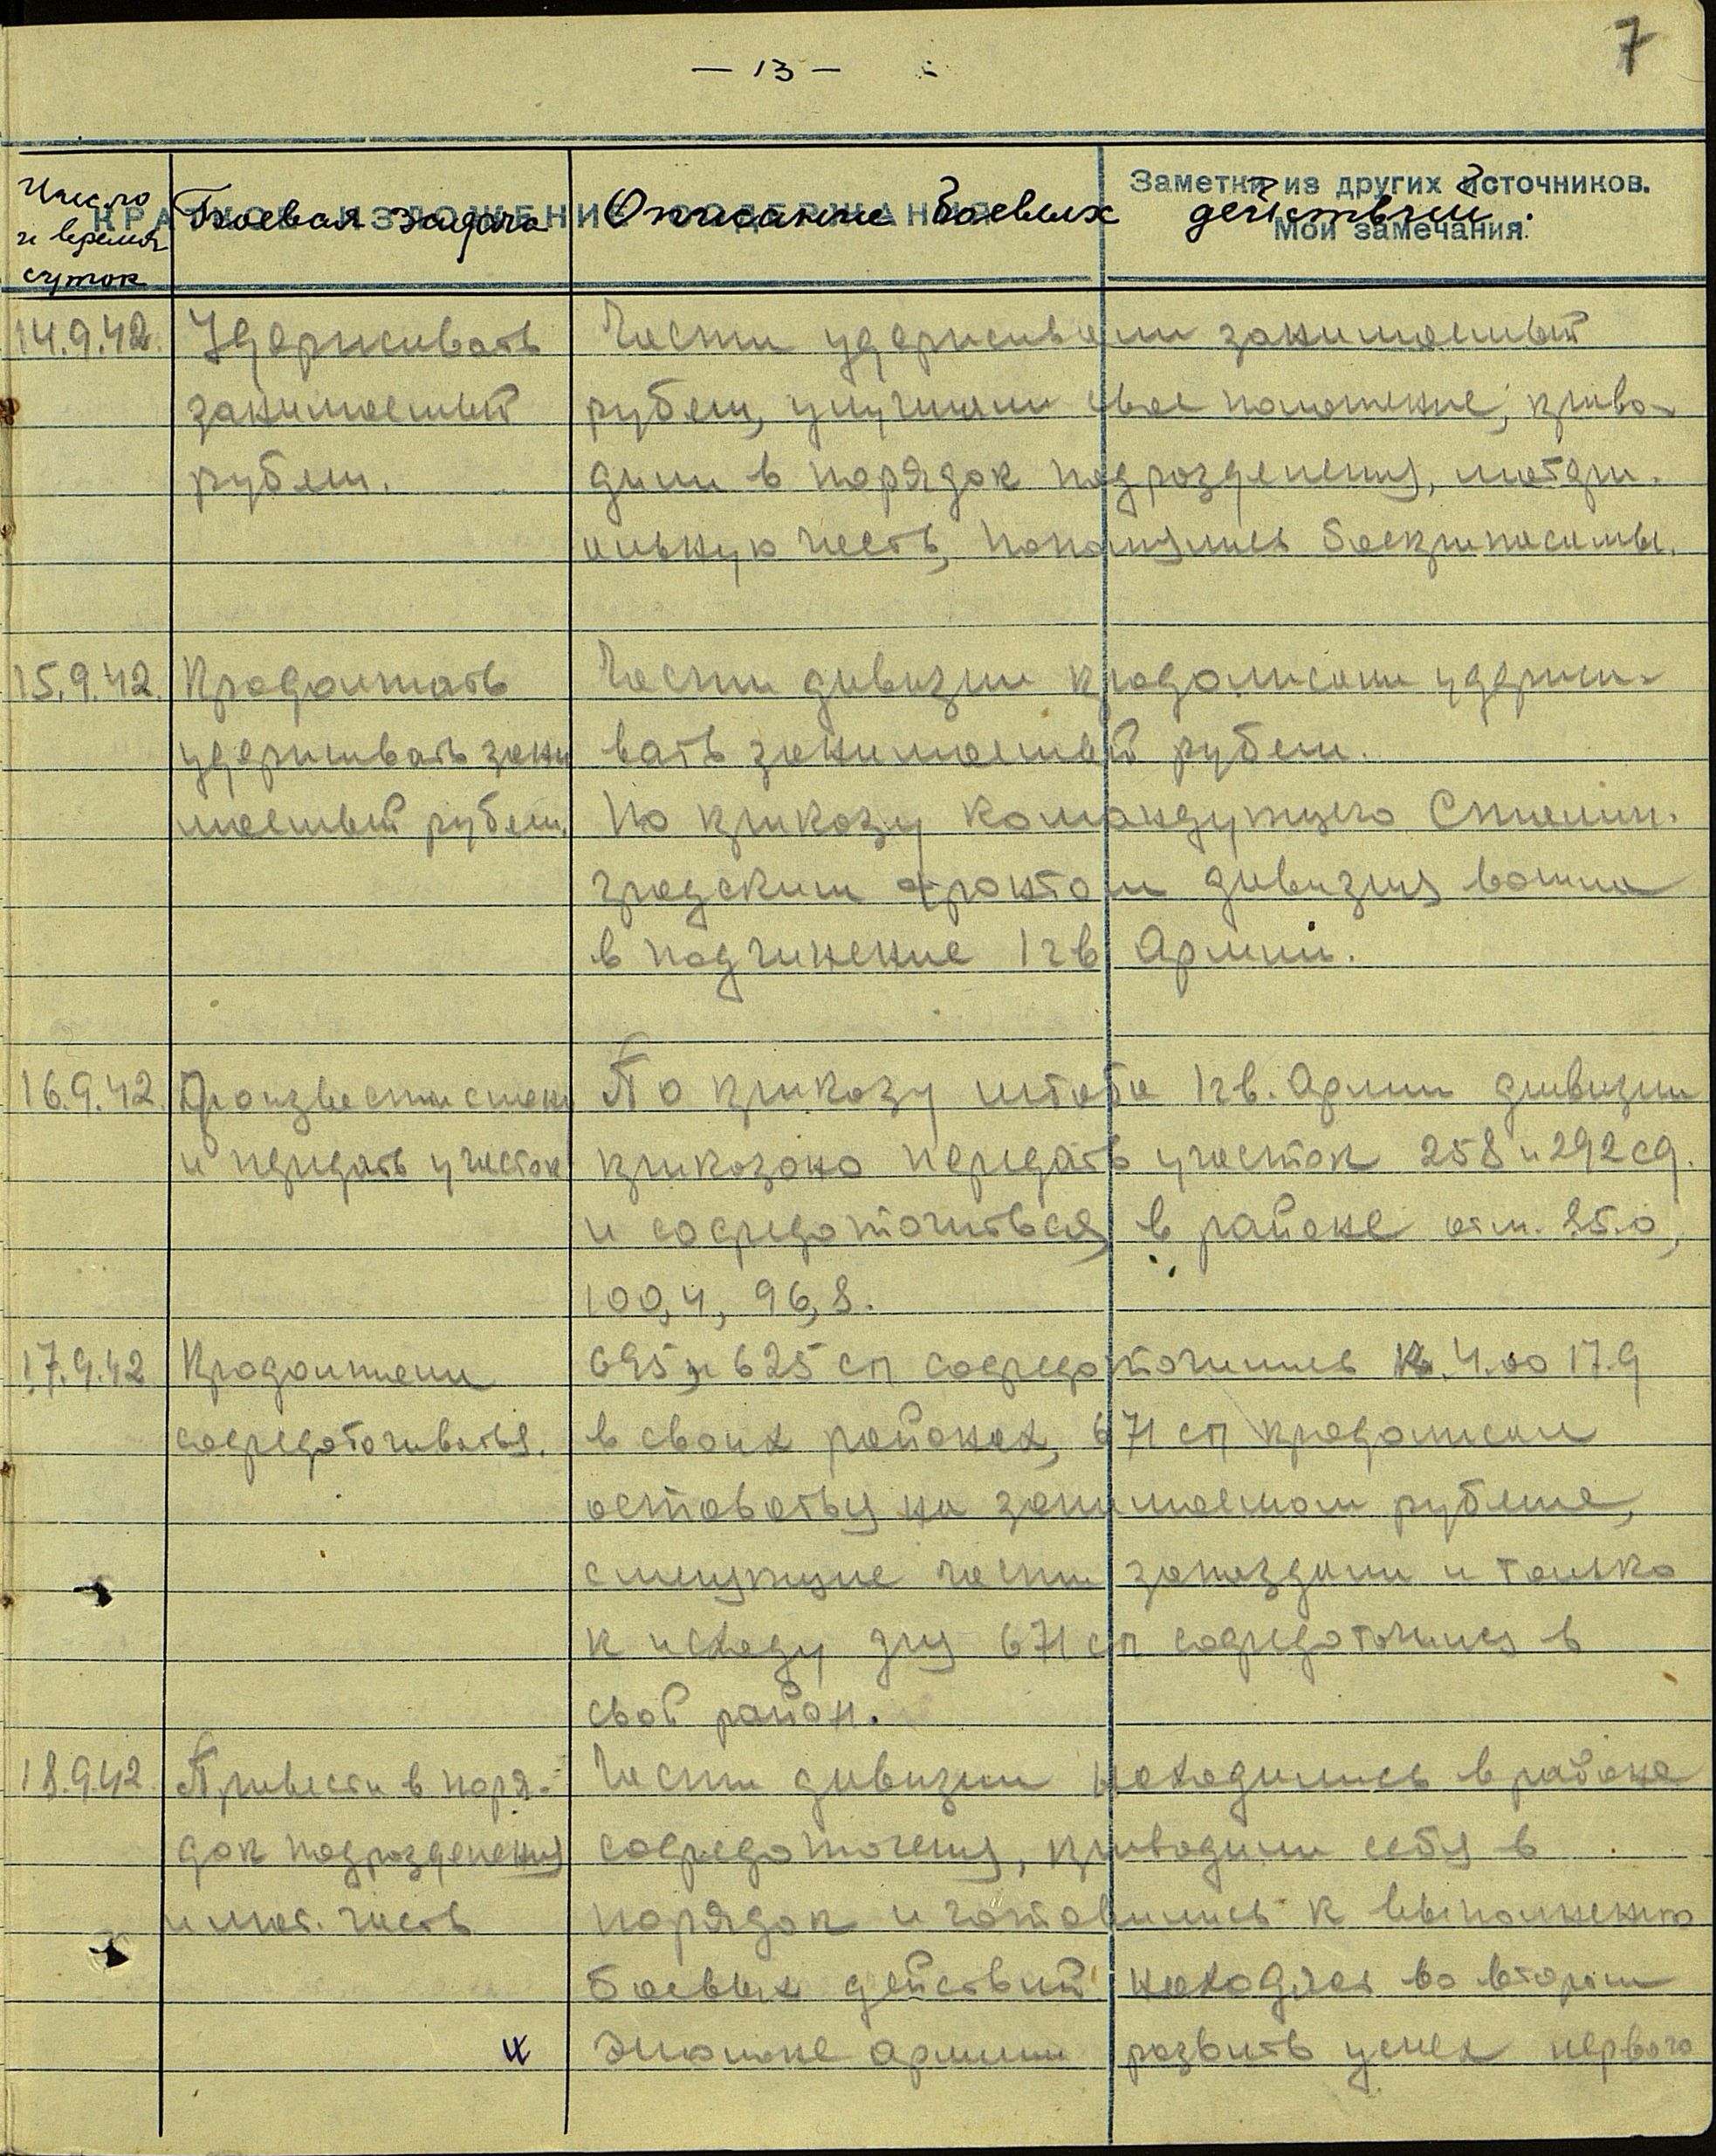 7
— 13 —
КРАТКОЕ ИЗЛОЖЕНИЕ СОДЕРЖАНИЯ
Заметки из других источников.
Мои замечания.
Число
и время
суток
Боевая задача
Описание боевых действий.
14.9.42.
Удерживать
занимаемый
рубеж.
Части удерживали занимаемый
рубеж, улучшали свое положение, приво-
дили в порядок подразделения, матери-
альную часть, пополнялись боеприпасами.
15.9.42.
Продолжать
удерживать зани
маемый рубеж.
Части дивизии продолжали удержи-
вать занимаемый рубеж.
По приказу командующего Сталин-
градским фронтом дивизия вошла
в подчинение 1 гв Армии.
16.9.42.
Произвести смену
и передать участок
По приказу штаба 1 гв. Армии дивизии
приказано передать участок 258 и 292 сд.
и сосредоточиться в районе отм. 85.0,
100,4, 96,8.
17.9.42
Продолжали
сосредотачиваться.
695 и 625 сп сосредоточились к 4.00 17.9
в своих районах, 671 сп продолжал
оставаться на занимаемом рубеже,
сменяющие части запоздали и только
к исходу дня 671 сп сосредоточился в
свой район.
18.9.42.
Привести в поря-
док подразделения
и мат. часть
Части дивизии находились в районе
сосредоточения, приводили себя в
порядок и готовились к выполнению
боевых действий находясь во втором
эшелоне армии развить успех первого